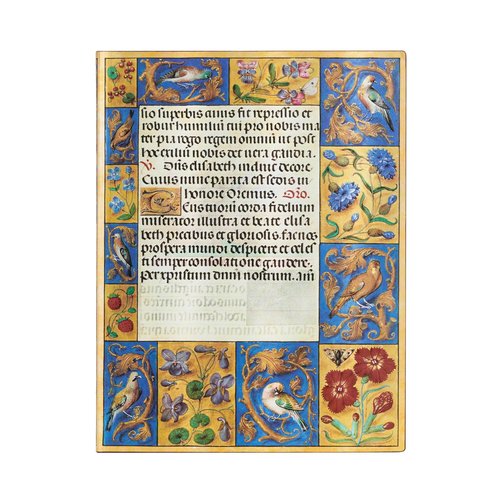 sio superbis cuius fit repressio et
robur humili cui pro nobis ma
ter pia rogo regem omnium ut
nobis det vera gaudia.
V. elisabeth induit decore
Cuius nunc parata est sedis in
honore Oremus. Oro.
corda fidelium
miserator illustra et beate elisa
beth precibus et gloriosis. fac nos
prospera mundi despicere et celes
ti semper consolatione gaudere.
Per xpistum dnm nostrum. am